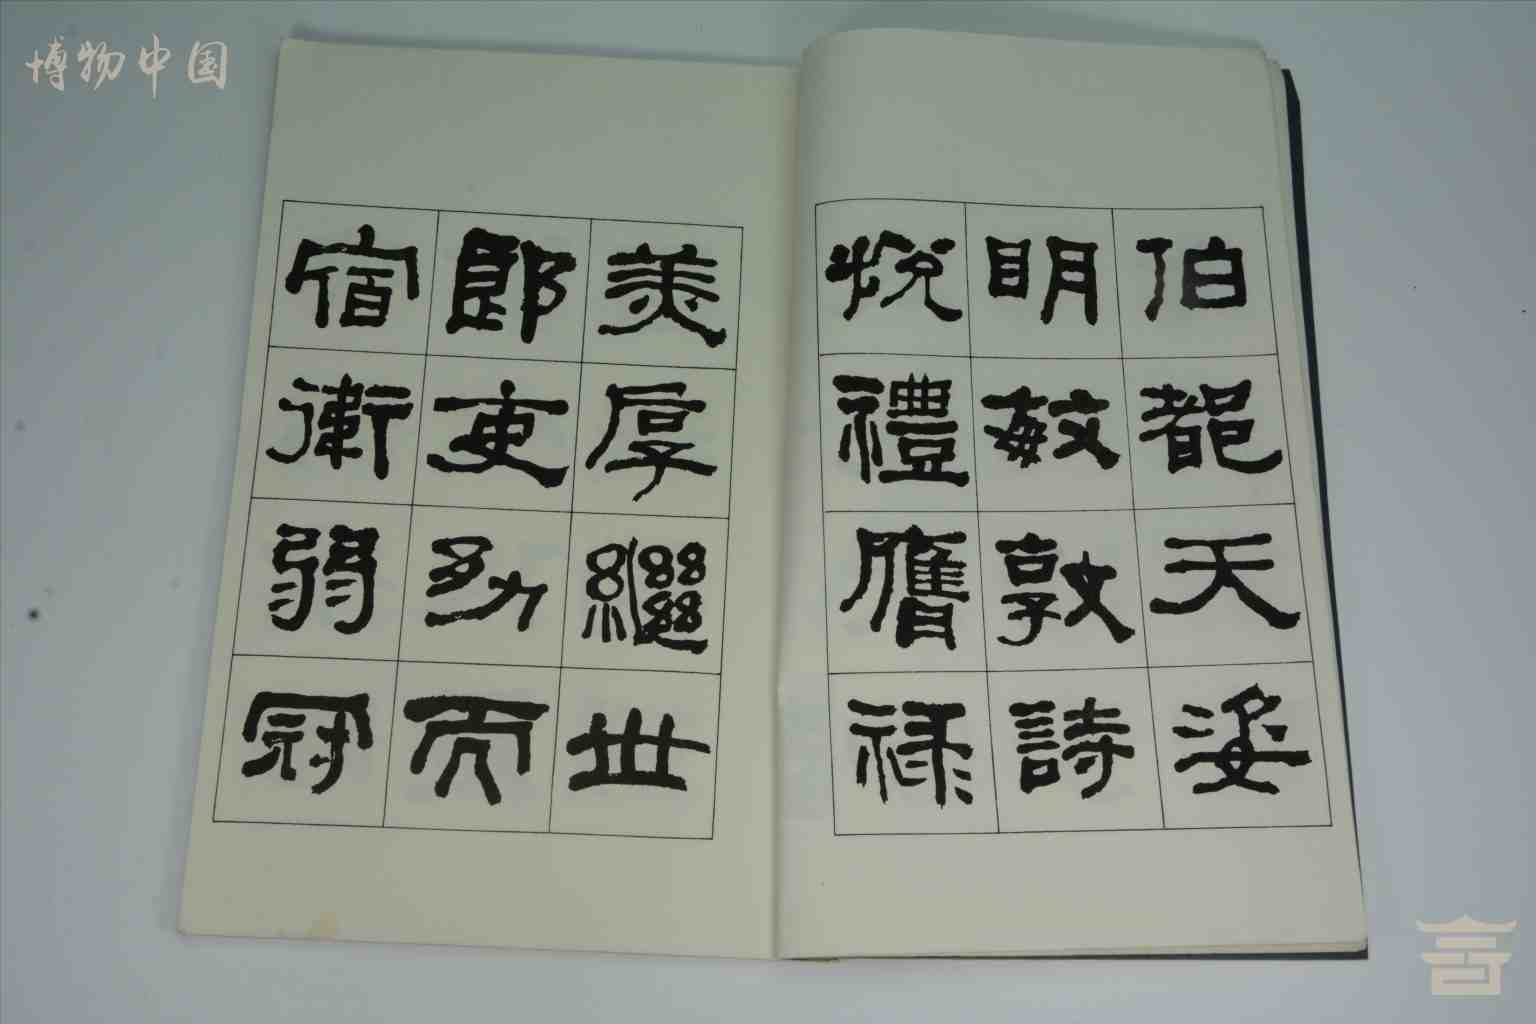 博物中国
伯都天姿
明敏敦詩
悅禮膺祿
美厚繼世
郎吏幼而
宿衛弱冠